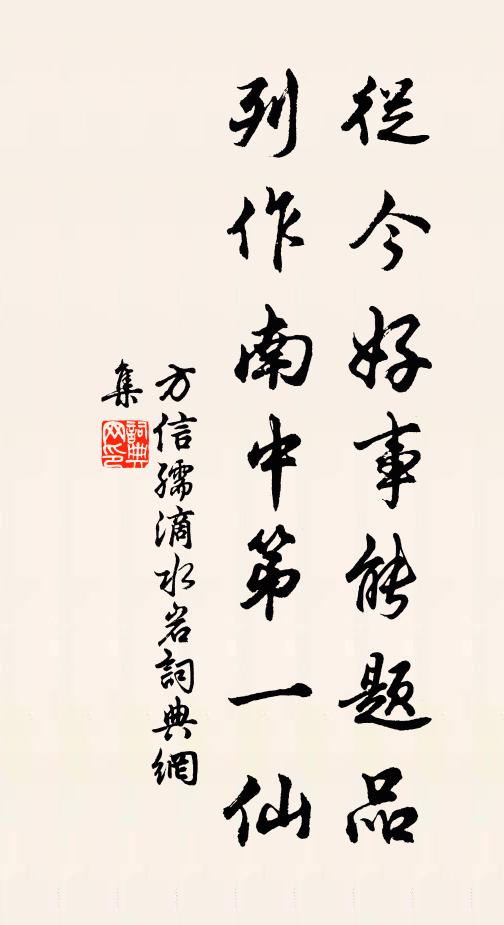 從今好事能题品
列作南中第一仙
方信孺滴水岩詞典網
集
詞典网印